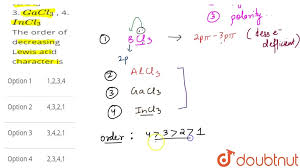 3. GaCl3 , 4.
InCl3
The order of
decreasing
Lewis acid
character is
Option 1 1,2,3,4
Option 2 4,3,2,1
Option 3 3,4,2,1
Option 4 2,3,4,1
③ polarity
① BCl3 → 2pπ - 3pπ (less e⁻
deficient)
2p
② AlCl3
③ GaCl3
④ InCl3
order : 4 > 3 > 2 > 1
doubtnut